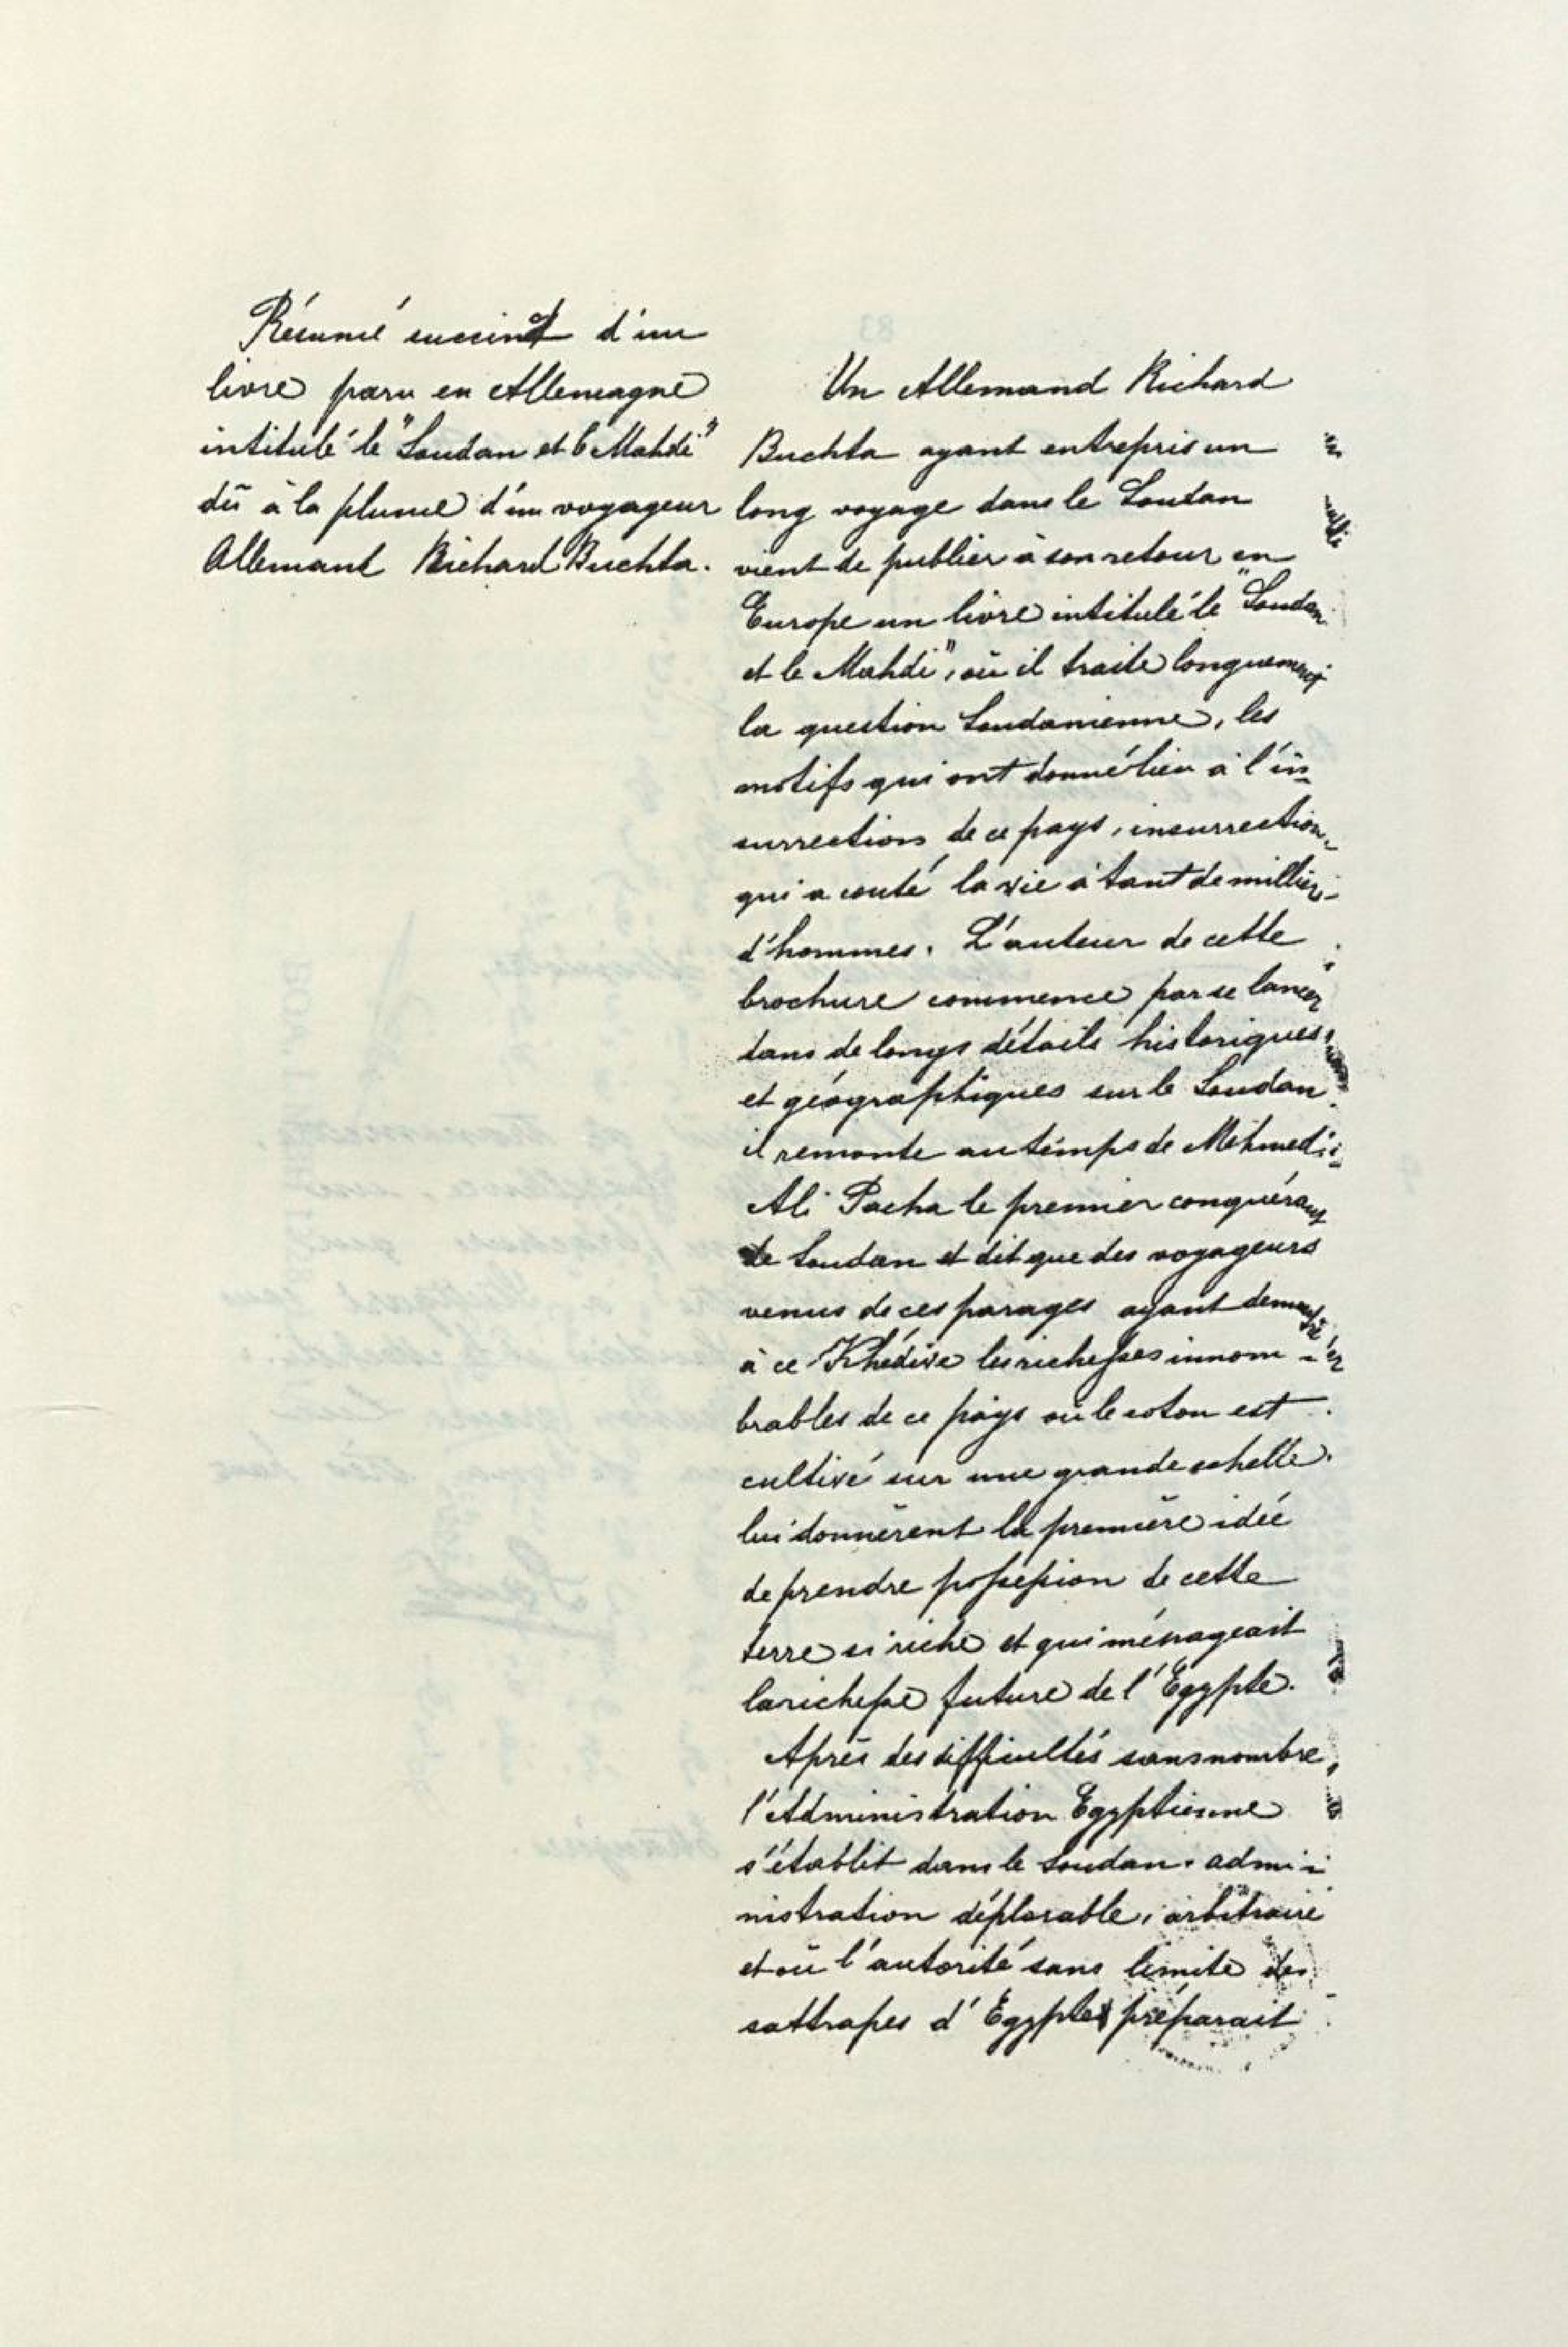 Résumé succinct d'un
livre paru en Allemagne
intitulé le "Soudan et le Mahdi"
dû à la plume d'un voyageur
Allemand Richard Buchta.
Un Allemand Richard
Buchta ayant entrepris un
long voyage dans le Soudan
vient de publier à son retour en
Europe un livre intitulé le "Soudan
et le Mahdi", où il traite longuement
la question Soudanienne, les
motifs qui ont donné lieu à l'in-
surrections de ce pays, insurrection
qui a couté la vie à tant de milliers
d'hommes. L'auteur de cette
brochure commence par se lancer
dans de longs détails historiques
et géographiques sur le Soudan.
il remonte au temps de Méhmed-
Ali Pacha le premier conquérant
de Soudan et dit que des voyageurs
venus de ces parages ayant démontré
à ce Khédive les richesses innom-
brables de ce pays où le coton est
cultivé sur une grande echelle.
lui donnèrent la première idée
de prendre possession de cette
terre si riche et qui ménageait
la richesse future de l'Egypte.
Après des difficultés sans nombre,
l'Administration Egyptienne
s'établit dans le Soudan. admi-
nistration déplorable, arbitraire
et où l'autorité sans limite des
sattrapes d'Egypte préparait